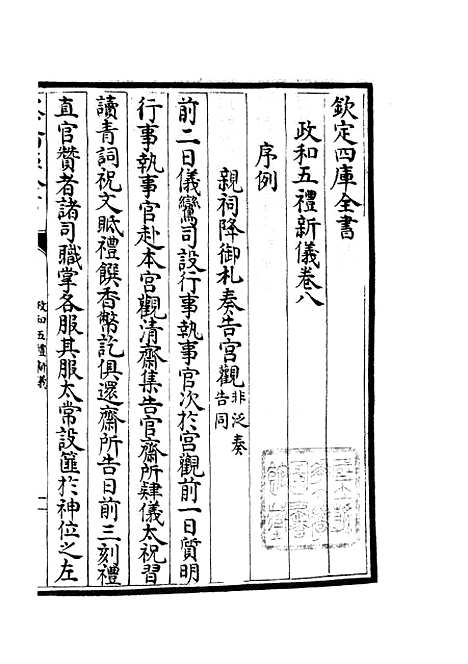 欽定四庫全書
政和五禮新儀卷八
序例
親祠降御札奏告宮觀非泛奏告同
前二日儀鸞司設行事執事官次於宮觀前一日質明
行事執事官赴本宮觀清齋集告官齋所肄儀太祝習
讀青詞祝文眂禮饌香幣訖俱還齋所告日前三刻禮
直官贊者諸司職掌各服其服太常設篚於神位之左
政和五禮新儀